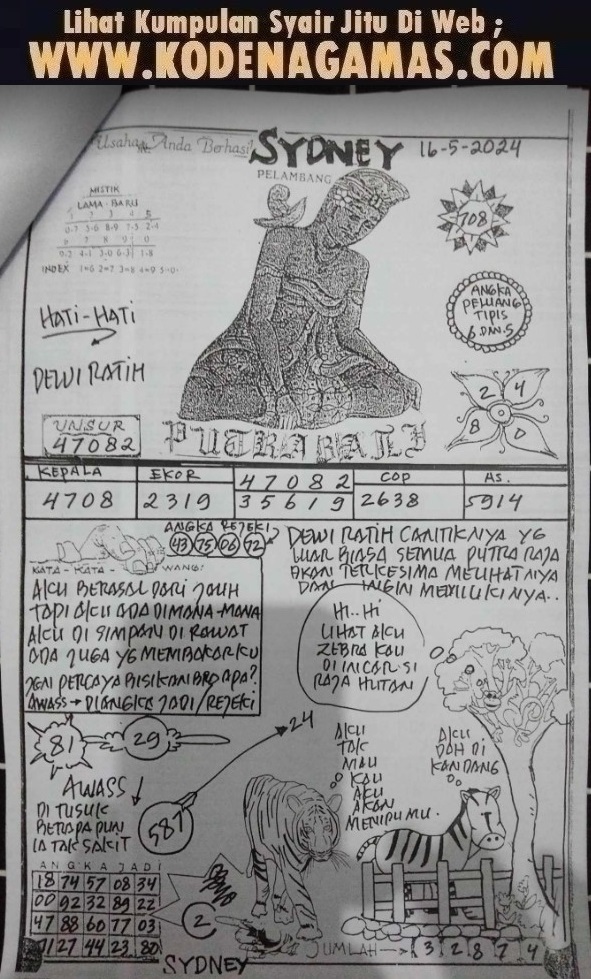 Lihat Kumpulan Syair Jitu Di Web ;
WWW.KODENAGAMAS.COM
Usaha Anda Berhasil
SYDNEY
16-5-2024
PELAMBANG
MISTIK
LAMA - BARU
INDEX 1=6 2=7 3=8 4=9 5=0
708
HATI-HATI
DEWI RATIH
ANGKA
PELUANG
TIPIS
6 DAN 5
2 4
8 0
UNSUR
47082
PUTRA RAJA
KEPALA EKOR 47082 COP AS.
4708 2319 35619 2638 5914
ANGKA REJEKI
43 75 06 72
DEWI RATIH CANTIKNYA YG
LUAR BIASA SEMUA PUTRA RAJA
AKAN TERKESIMA MELIHATNYA
DAN INGIN MEMILUKINYA..
KATA - KATA - WANG:
AKU BERASAL DARI JAUH
TAPI AKU ADA DIMANA-MANA
AKU DI SIMPAN DI RAWAT
ADA JUGA YG MEMBAKARKU
PERCAYA BISIKAN BRO APA?
AWASS → DIANGKA JADI/REJEKI
HI.. HI
LIHAT AKU
ZEBRA KAU
DI INCAR SI
RAJA HUTAN
81
29
24
AKU
TAK
MAU
KAU
AKU
AKAN
MENIPUMU.
AKU
DAH DI
KANDANG
AWASS
DI TUSUK
BERAPA PUN
IA TAK SAKIT
587
ANGKA JADI
18 74 57 08 34
00 92 32 89 22
47 88 60 77 03
71 27 44 23 80
2
JUMLAH → 3 2 8 7 4
SYDNEY